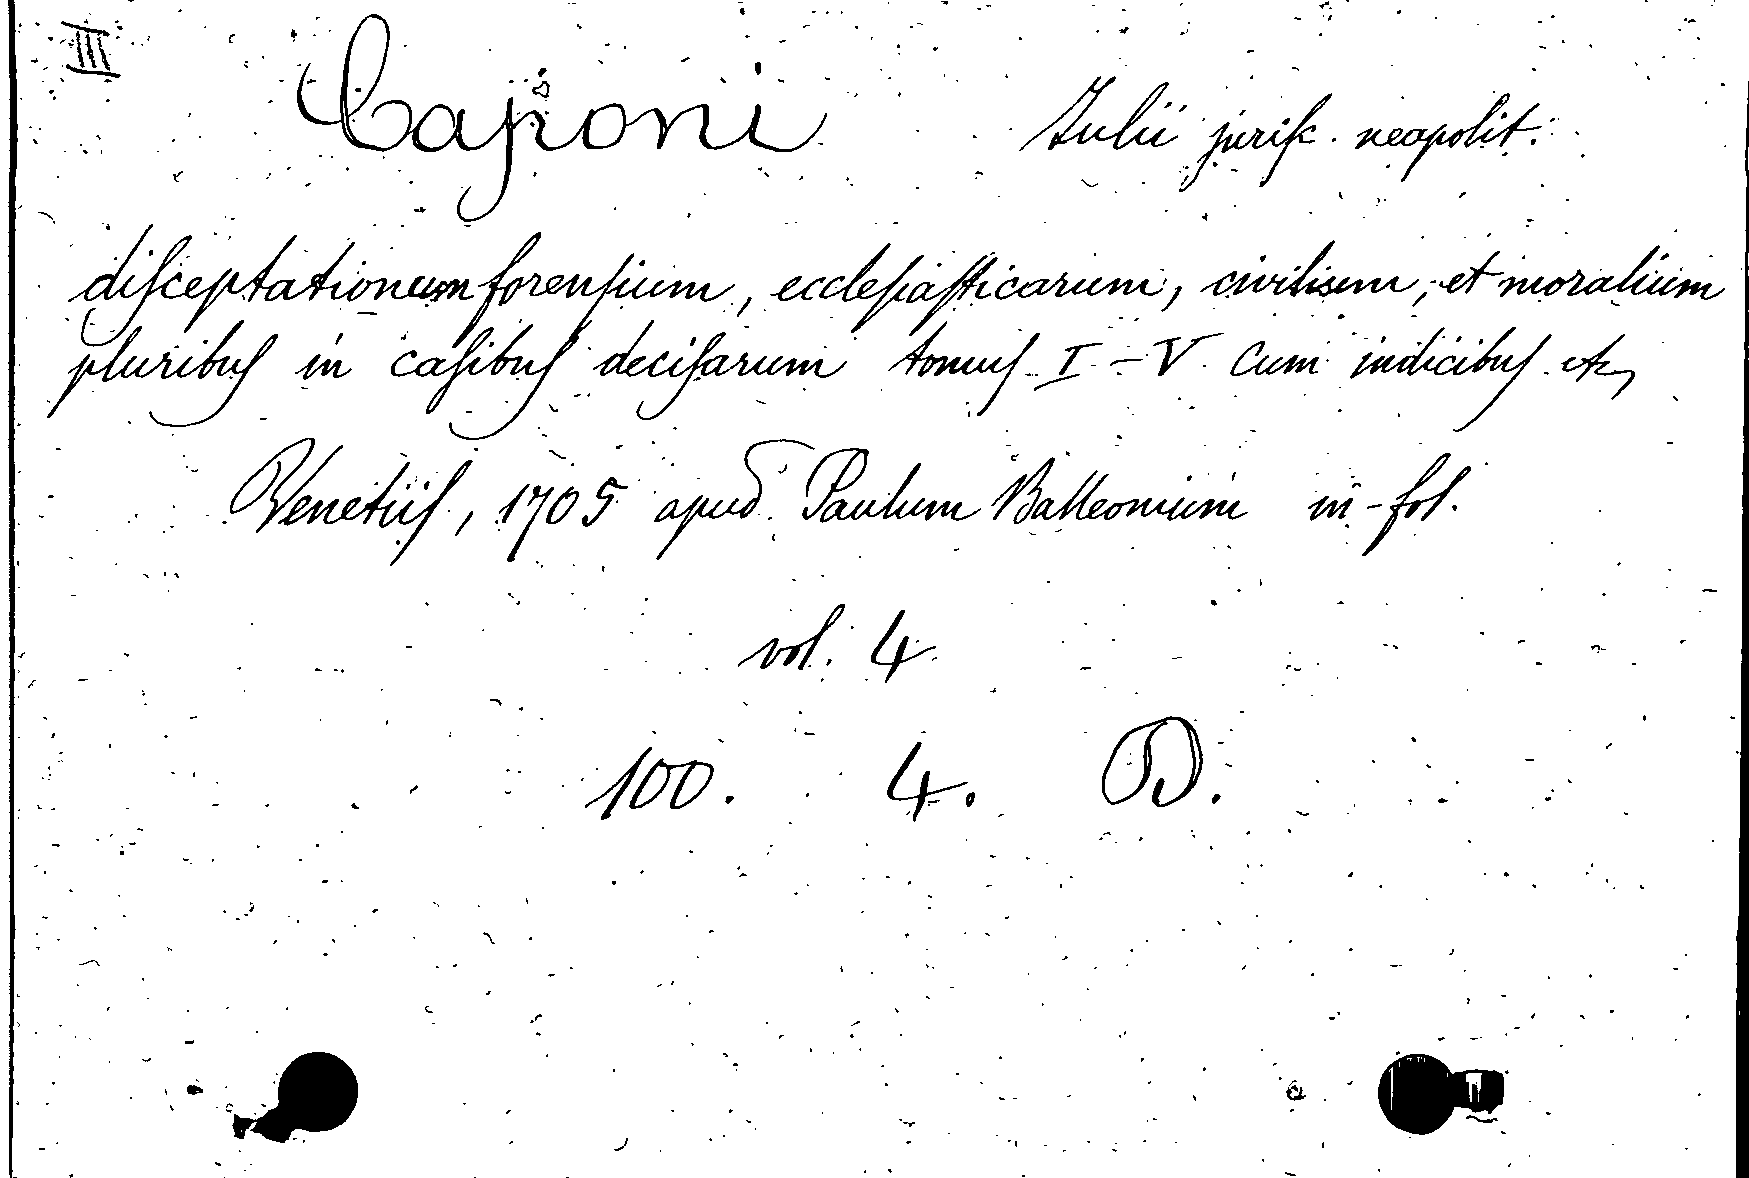 III
Caponi Julii jurisc. neapolit.
disceptationum forensium, ecclesiasticarum, civilium, et moralium
pluribus in casibus decisarum tomus I - V cum indicibus etc,
Venetiis, 1705 apud Paulum Balleonium in-fol.
vol. 4.
100. 4. D.